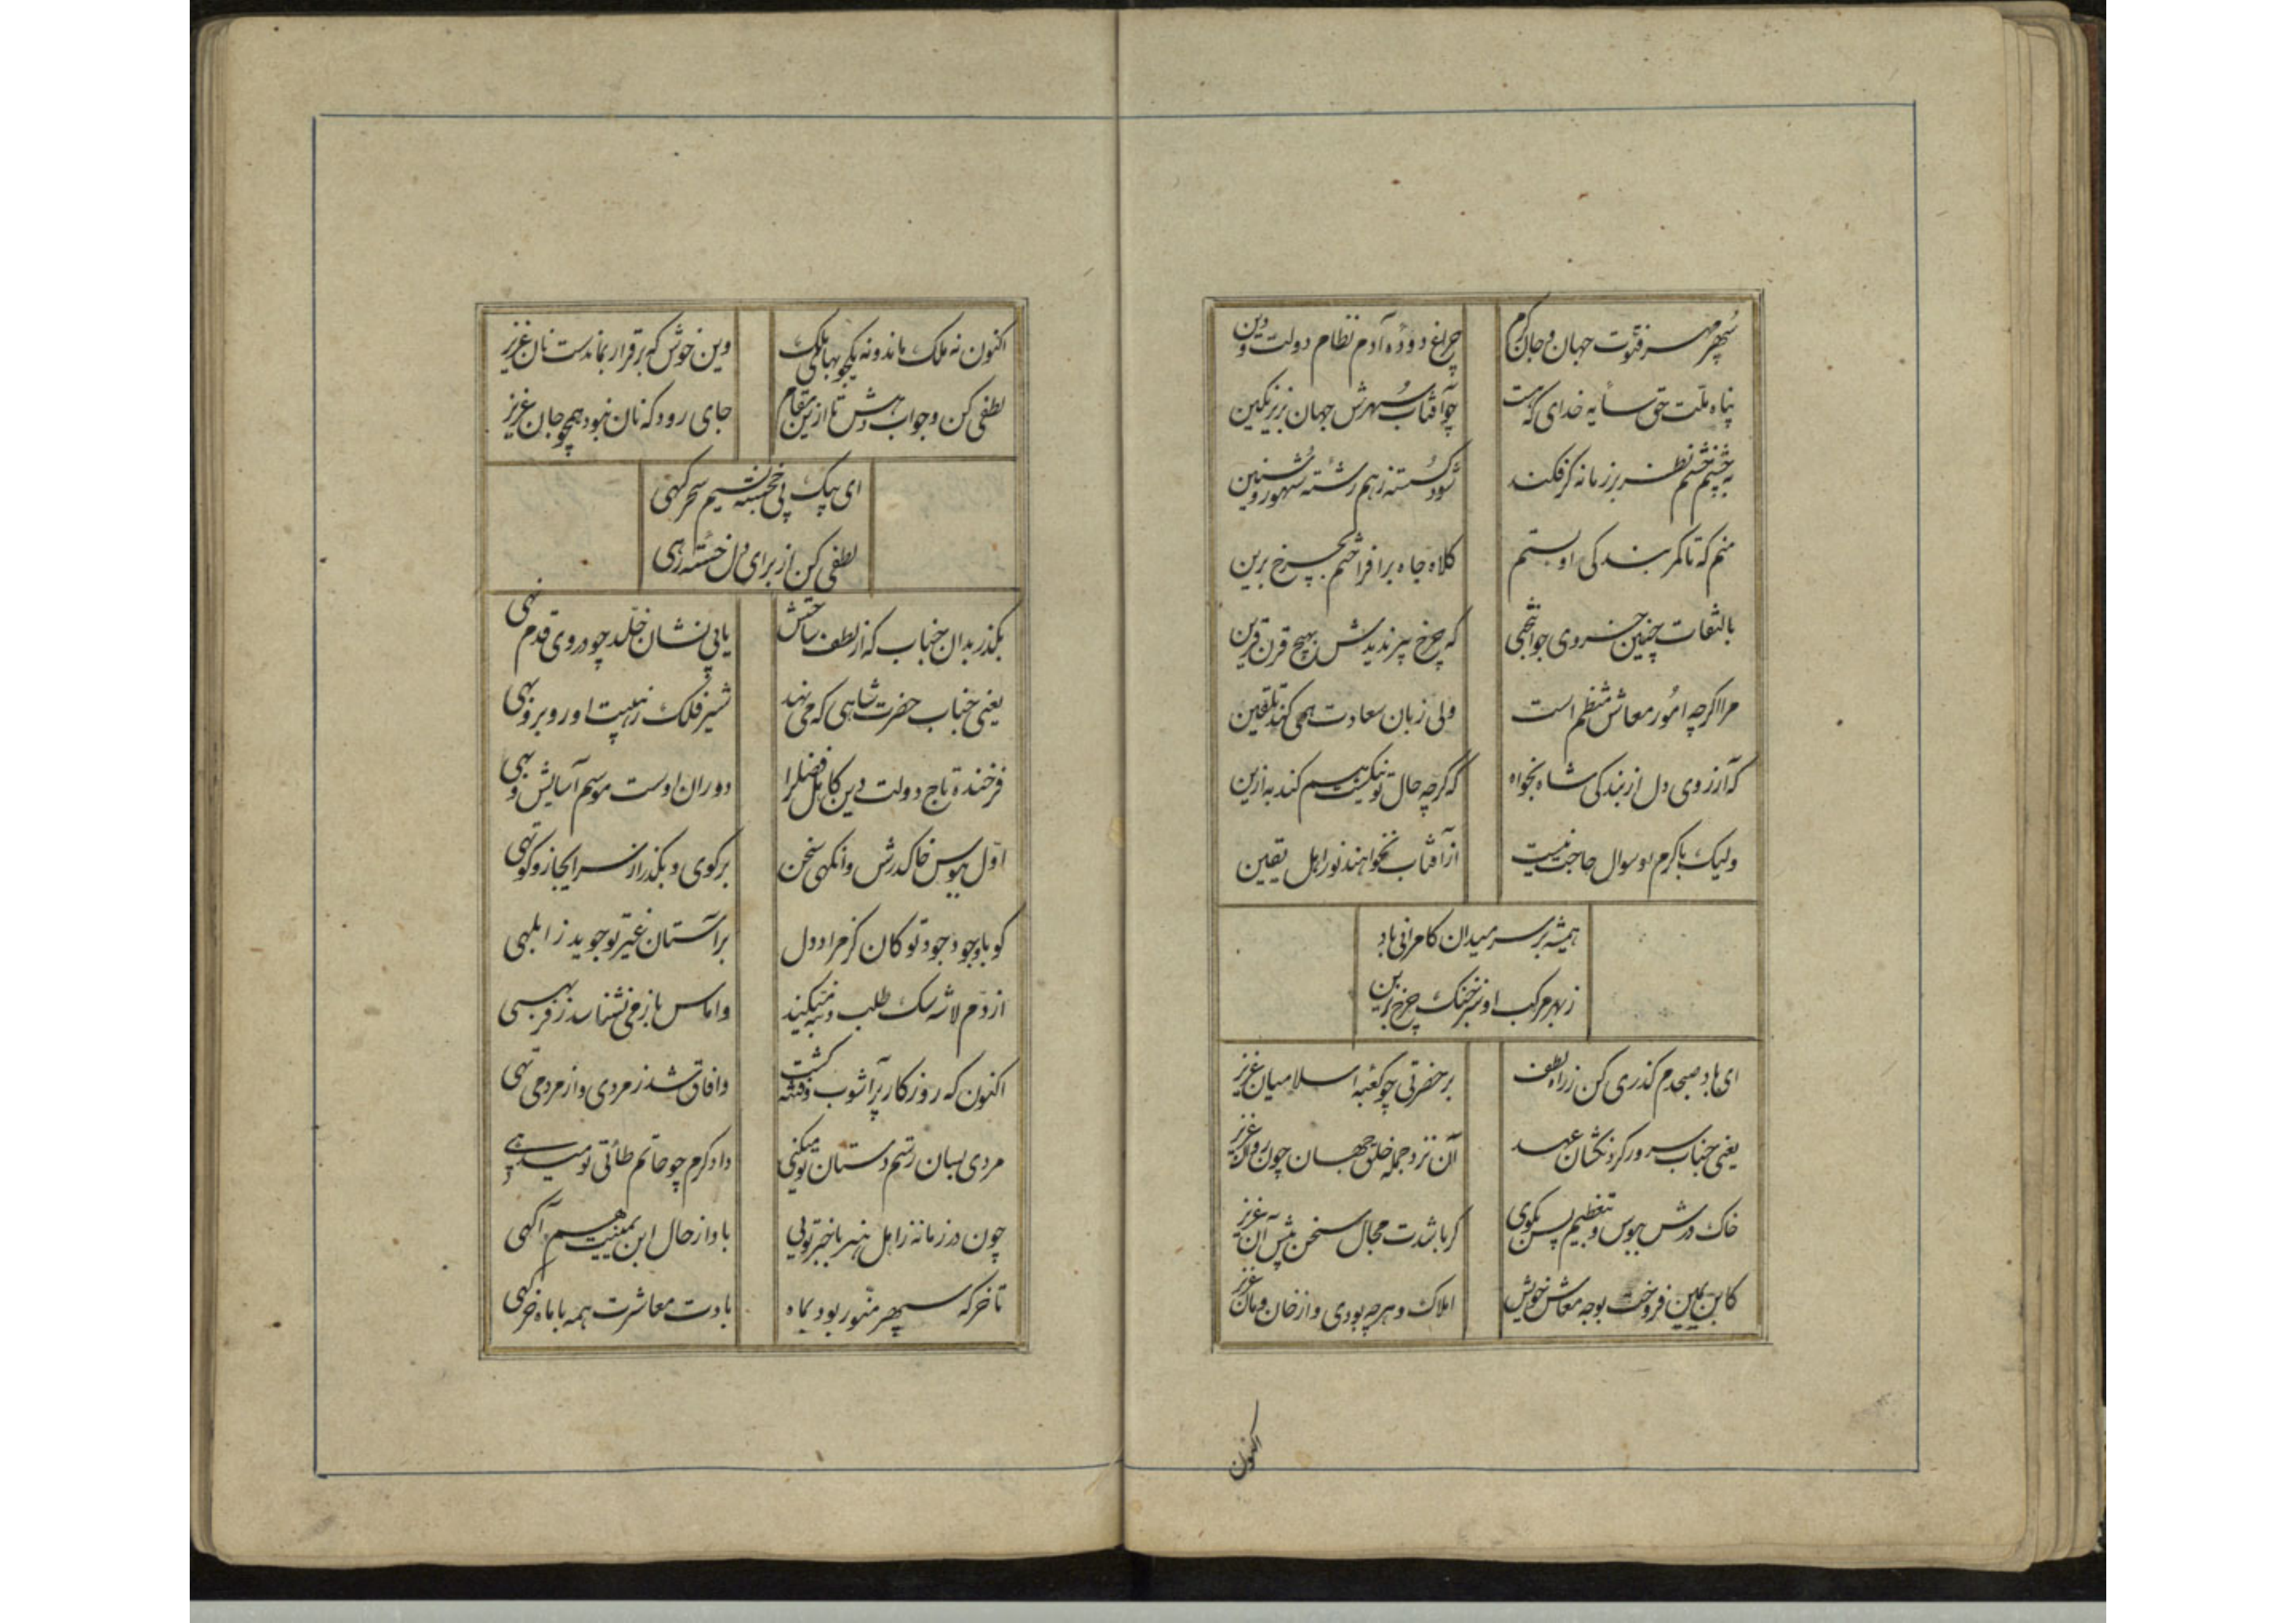 سپهر مهر فتوت جهان و جان کرم
چراغ دوده آدم نظام دولت و دین
پناه ملت حق سایه خدای که هست
چو آفتاب سپهرش جهان بزیر نکین
بچشم خشم نظر بر زمانه کر فکند
شود کسسته ز هم رشته شهور و سنین
منم که تا کمر بندکی او بستم
کلاه جاه برافراختم بچرخ برین
بالتفات چنین خسروی جوانبختی
که چرخ پیر ندیدش بهیچ قرن قرین
مرا اکرچه امور معاش منتظم است
ولی زبان سعادت همی کند تلقین
که آرزوی دل از بندکی شاه بخواه
که کرچه حال تو نیکست هم کند به ازین
ولیک با کرم او سوال حاجت نیست
از آفتاب نخواهند نور اهل یقین
همیشه بر سر میدان کامرانی باد
ز بهر مرکب او سبز خنک چرخ برین
ای باد صبحدم کذری کن ز راه لطف
بر حضرتی چو کعبه اسلامیان عزیز
یعنی جناب سرور کردنکشان عهد
آن نزد جمله خلق جهان چون روان عزیز
خاک درش ببوس و بتعظیم پس بکوی
کر باشدت مجال سخن پیش آن عزیز
کابن یمین فروخت بوجه معاش خویش
املاک و هرچه بودی و از خان و مان عزیز
اکنون
اکنون نه ملک ماند و نه یکجو بهای ملک
وین خوش که برقرار بماندست نان عزیز
لطفی کن و جواب دهش تا ازین مقام
جای رود که نان نبود همچو جان عزیز
ای پیک پی خجسته نسیم سحرکهی
لطفی کن از برای دل خسته رهی
بکذر بدان جناب که از لطف ساحتش
یابی نشان خلد چو در وی قدم نهی
یعنی جناب حضرت شاهی که می نهد
شیر فلک ز هیبت او رو بروبهی
فرخنده تاج دولت و دین کاهل فضل را
دوران اوست موسم آسایش و بهی
اول ببوس خاک درش وانکهی سخن
برکوی و بکذر از سر ایجاز و کوتهی
کو با وجود جود تو کان کز مراد دل
بر آستان غیر تو جوید ز ابلهی
از دم لاشه سک طلب دنبه میکند
واماس باز می نشناسد ز فربهی
اکنون که روزکار پر آشوب و فتنه کشت
وافاق شد ز مردی و از مردمی تهی
مردی بسان رستم دستان تو میکنی
داد کرم چو حاتم طائی تو میدهی
چون در زمانه ز اهل هنر باخبر تویی
بادا ز حال ابن یمینت هم آکهی
تا خرکه سپهر منور بود بماه
بادت معاشرت همه با ماه خرکهی